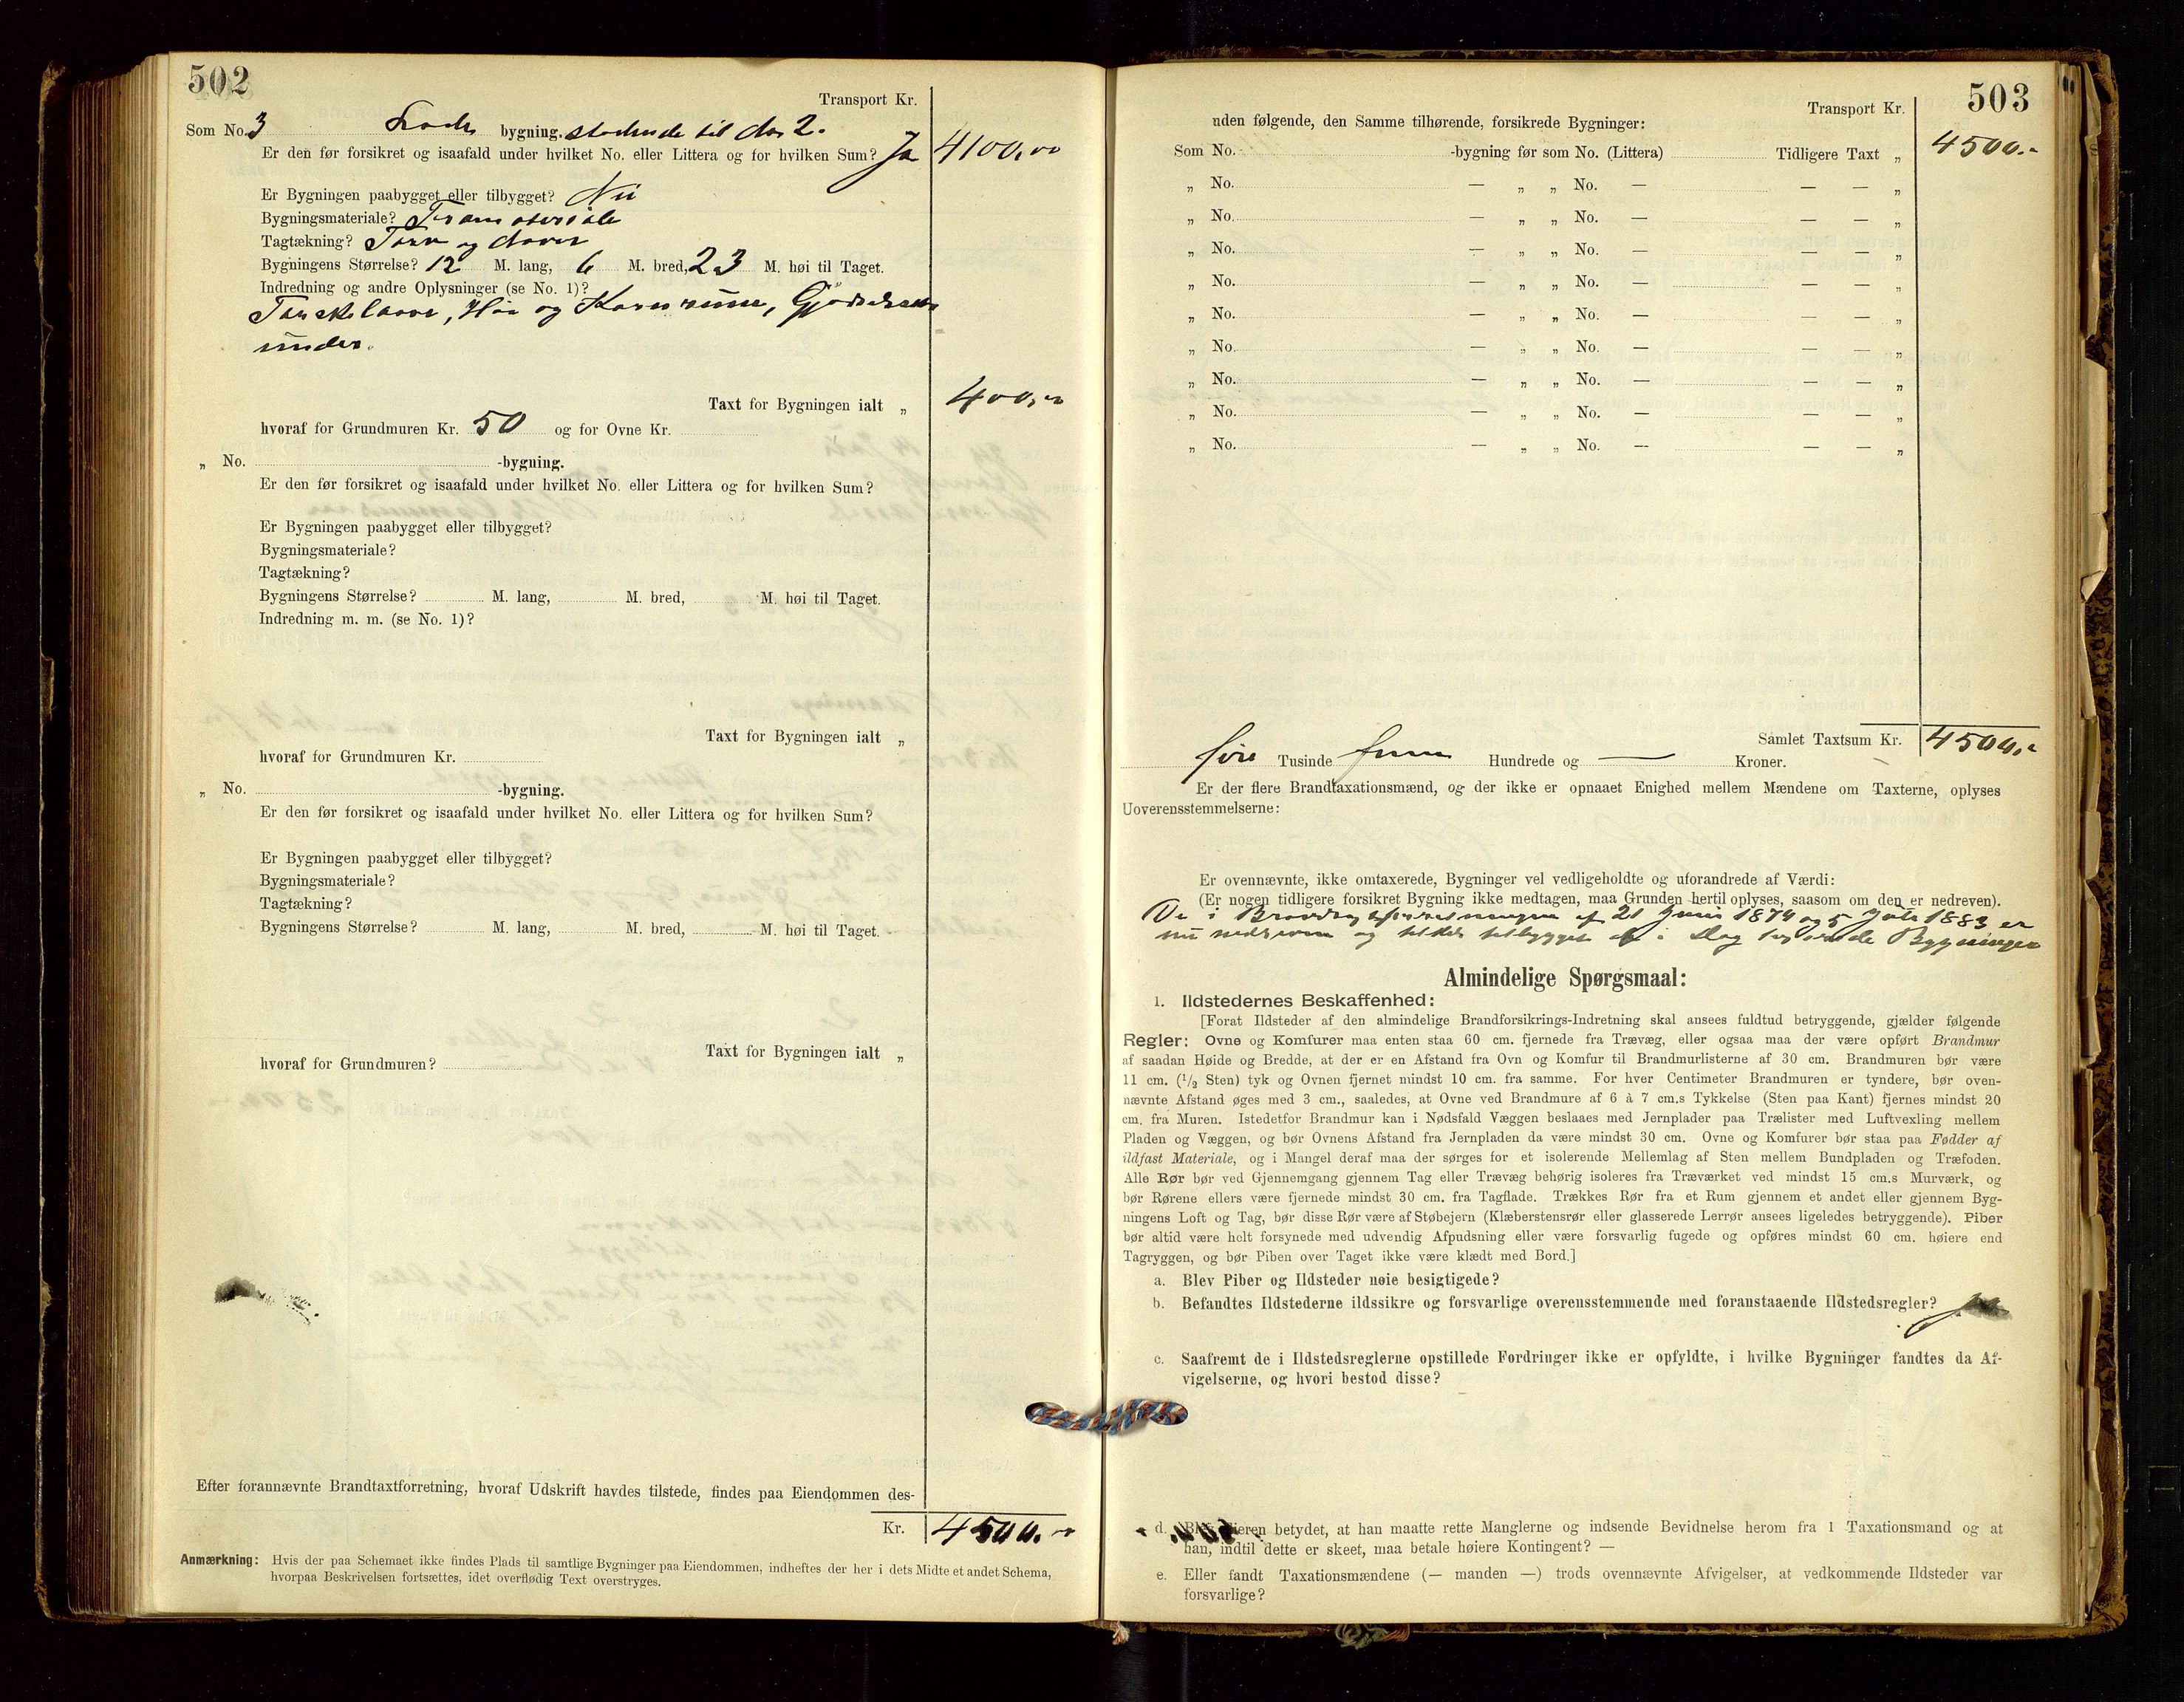 502
Transport Kr.
Som No. 3 bygning. til No 2.
Er den før forsikret og isaafald under hvilket No. eller Littera og for hvilken Sum? Ja 4100,00
Er Bygningen paabygget eller tilbygget? Nei
Bygningsmateriale? Træmateriale
Tagtækning? Torv og
Bygningens Størrelse? 12 M. lang, 6 M. bred, 23 M. høi til Taget.
Indredning og andre Oplysninger (se No. 1)?
Tærskelaave, Hø og Kornrum,
under.
Taxt for Bygningen ialt „ 400,00
hvoraf for Grundmuren Kr. 50 og for Ovne Kr.
„ No. -bygning.
Er den før forsikret og isaafald under hvilket No. eller Littera og for hvilken Sum?
Er Bygningen paabygget eller tilbygget?
Bygningsmateriale?
Tagtækning?
Bygningens Størrelse? M. lang, M. bred, M. høi til Taget.
Indredning m. m. (se No. 1)?
Taxt for Bygningen ialt „
hvoraf for Grundmuren Kr.
„ No. -bygning.
Er den før forsikret og isaafald under hvilket No. eller Littera og for hvilken Sum?
Er Bygningen paabygget eller tilbygget?
Bygningsmateriale?
Tagtækning?
Bygningens Størrelse? M. lang, M. bred, M. høi til Taget.
Taxt for Bygningen ialt „
hvoraf for Grundmuren?
Efter forannævnte Brandtaxtforretning, hvoraf Udskrift havdes tilstede, findes paa Eiendommen des-
Kr. 4500.
Anmærkning: Hvis der paa Schemaet ikke findes Plads til samtlige Bygninger paa Eiendommen, indheftes der her i dets Midte et andet Schema,
hvorpaa Beskrivelsen fortsættes, idet overflødig Text overstryges.
503
Transport Kr.
uden følgende, den Samme tilhørende, forsikrede Bygninger:
Som No. -bygning før som No. (Littera) Tidligere Taxt „ 4500.
„ No. — „ „ No. — — — „
„ No. — „ „ No. — — — „
„ No. — „ „ No. — — — „
„ No. — „ „ No. — — — „
„ No. — „ „ No. — — — „
„ No. — „ „ No. — — — „
„ No. — „ „ No. — — — „
„ No. — „ „ No. — — — „
„ No. — „ „ No. — — — „
Samlet Taxtsum Kr. 4500.
fire Tusinde fem Hundrede og — Kroner.
Er der flere Brandtaxationsmænd, og der ikke er opnaaet Enighed mellem Mændene om Taxterne, oplyses
Uoverensstemmelserne:
Er ovennævnte, ikke omtaxerede, Bygninger vel vedligeholdte og uforandrede af Værdi:
(Er nogen tidligere forsikret Bygning ikke medtagen, maa Grunden hertil oplyses, saasom om den er nedreven).
De i af 21 Juni 1874 og 5 Juli 1883 er
nu nedrevne og i Dag Bygninger
Almindelige Spørgsmaal:
1. Ildstedernes Beskaffenhed:
[Forat Ildsteder af den almindelige Brandforsikrings-Indretning skal ansees fuldtud betryggende, gjælder følgende
Regler: Ovne og Komfurer maa enten staa 60 cm. fjernede fra Trævæg, eller ogsaa maa der være opført Brandmur
af saadan Høide og Bredde, at der er en Afstand fra Ovn og Komfur til Brandmurlisterne af 30 cm. Brandmuren bør være
11 cm. (1/2 Sten) tyk og Ovnen fjernet mindst 10 cm. fra samme. For hver Centimeter Brandmuren er tyndere, bør oven-
nævnte Afstand øges med 3 cm., saaledes, at Ovne ved Brandmure af 6 à 7 cm.s Tykkelse (Sten paa Kant) fjernes mindst 20
cm. fra Muren. Istedetfor Brandmur kan i Nødsfald Væggen beslaaes med Jernplader paa Trælister med Luftvexling mellem
Pladen og Væggen, og bør Ovnens Afstand fra Jernpladen da være mindst 30 cm. Ovne og Komfurer bør staa paa Fødder af
ildfast Materiale, og i Mangel deraf maa der sørges for et isolerende Mellemlag af Sten mellem Bundpladen og Træfoden.
Alle Rør bør ved Gjennemgang gjennem Tag eller Trævæg behørig isoleres fra Træværket ved mindst 15 cm.s Murværk, og
bør Rørene ellers være fjernede mindst 30 cm. fra Tagflade. Trækkes Rør fra et Rum gjennem et andet eller gjennem Byg-
ningens Loft og Tag, bør disse Rør være af Støbejern (Klæberstensrør eller glasserede Lerrør ansees ligeledes betryggende). Piber
bør altid være helt forsynede med udvendig Afpudsning eller være forsvarlig fugede og opføres mindst 60 cm. høiere end
Tagryggen, og bør Piben over Taget ikke være klædt med Bord.]
a. Blev Piber og Ildsteder nøie besigtigede?
b. Befandtes Ildstederne ildssikre og forsvarlige overensstemmende med foranstaaende Ildstedsregler? Ja
c. Saafremt de i Ildstedsreglerne opstillede Fordringer ikke er opfyldte, i hvilke Bygninger fandtes da Af-
vigelserne, og hvori bestod disse?
d. Blev Eieren betydet, at han maatte rette Manglerne og indsende Bevidnelse herom fra 1 Taxationsmand og at
han, indtil dette er skeet, maa betale høiere Kontingent? —
e. Eller fandt Taxationsmændene (— manden —) trods ovennævnte Afvigelser, at vedkommende Ildsteder var
forsvarlige?